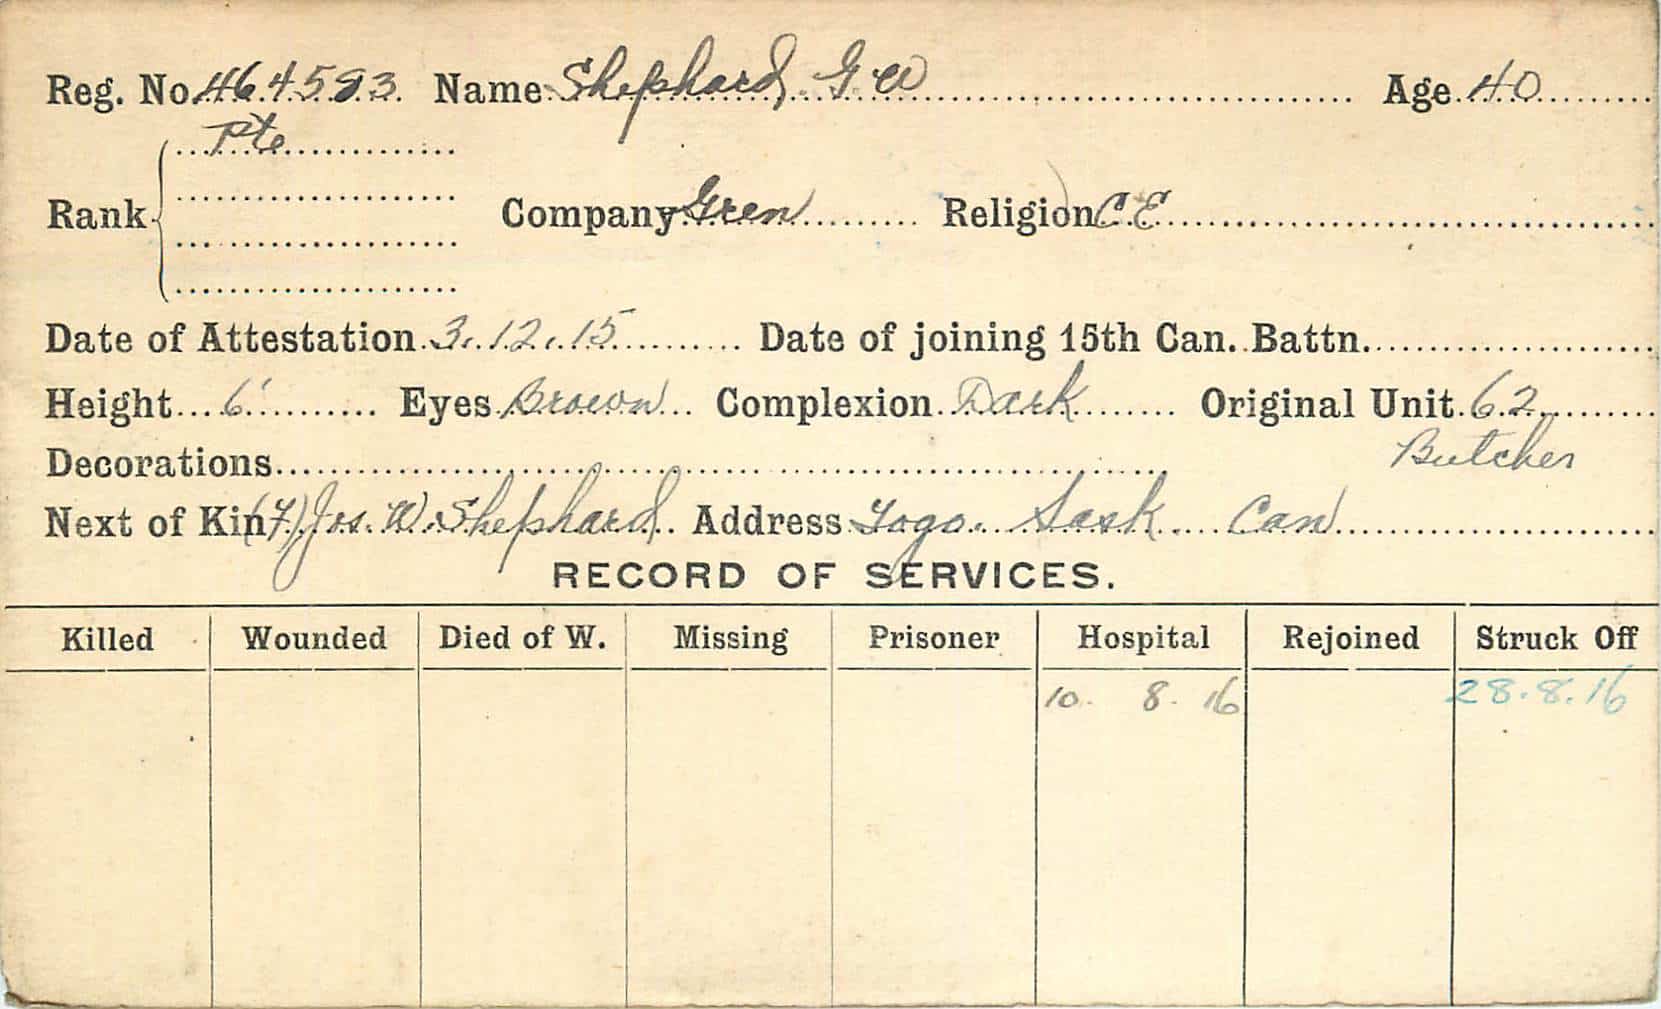 Reg. No. 464593 Name Shephard, G W Age 40
Pte
Rank Company Gren Religion C.E.
Date of Attestation 3.12.15 Date of joining 15th Can. Battn.
Height 6' Eyes Brown Complexion Dark Original Unit 62
Butcher
Decorations
Next of Kin (F) Jos. W. Shephard Address Togo. Sask Can
RECORD OF SERVICES.
Killed Wounded Died of W. Missing Prisoner Hospital Rejoined Struck Off
10. 8. 16 28.8.16